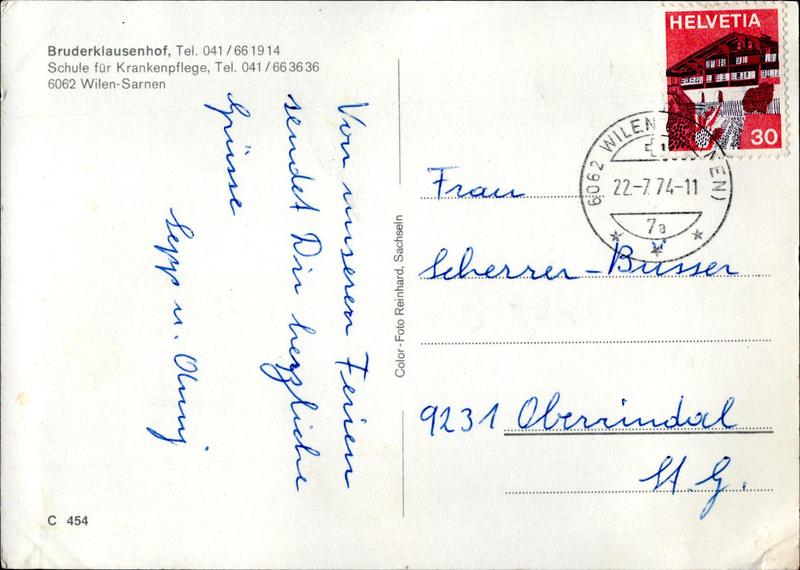 Bruderklausenhof, Tel. 041/661914
Schule für Krankenpflege, Tel. 041/663636
6062 Wilen-Sarnen
Von unseren Ferien
sendet Dir herzliche
Grüsse
Sepp u.
C 454
Color-Foto Reinhard, Sachseln
HELVETIA
30
6062 WILEN
22.-7.74-11
7a
Frau
Scherrer-Busser
9231 Oberrindal
St. G.